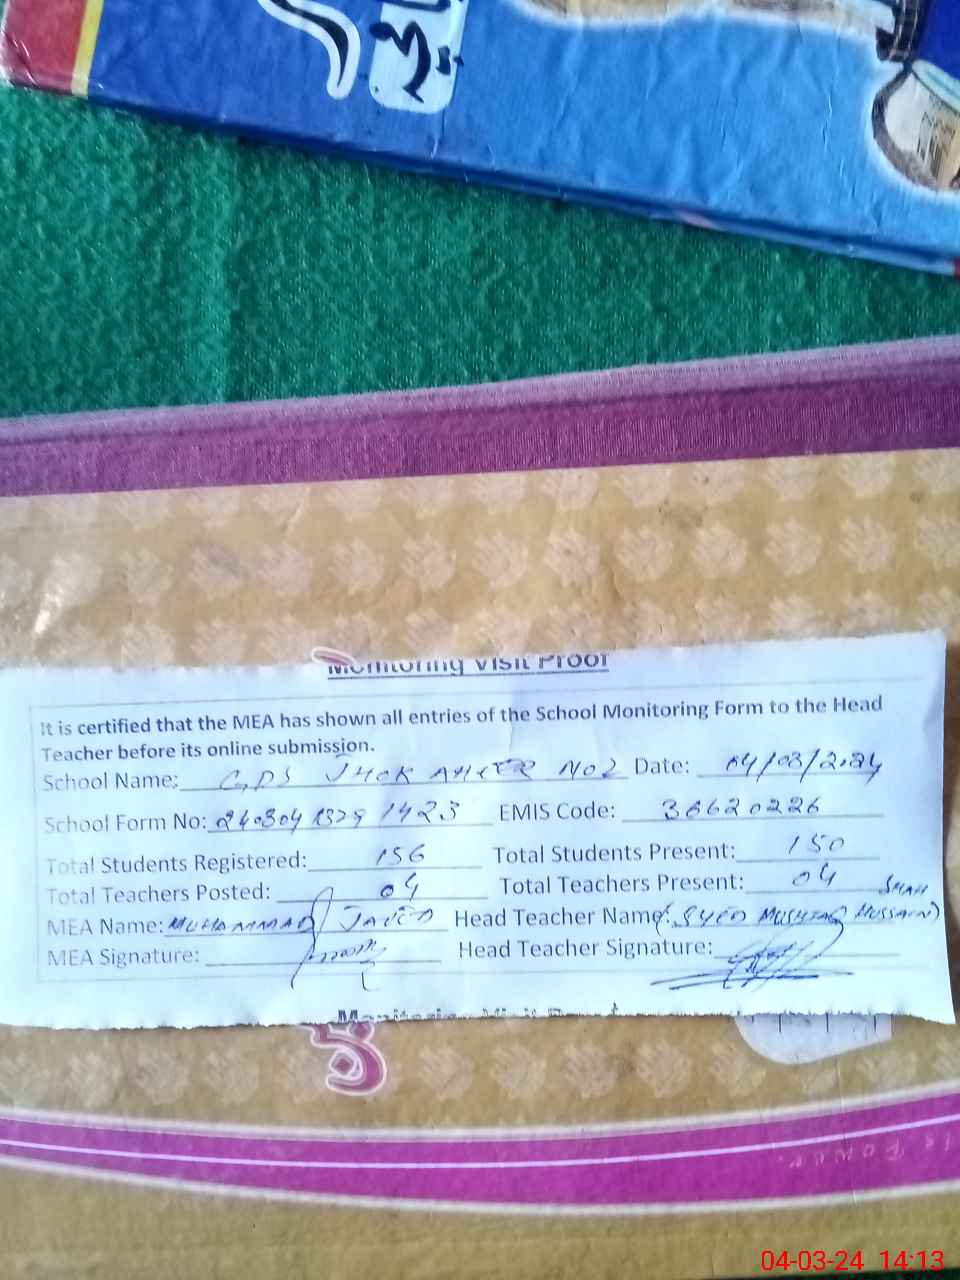 Monitoring Visit Proof
It is certified that the MEA has shown all entries of the School Monitoring Form to the Head
Teacher before its online submission.
School Name: GPS JHOK AHEER NO2 Date: 04/03/2024
School Form No: EMIS Code: 36620226
Total Students Registered: 156 Total Students Present: 150
Total Teachers Posted: 04 Total Teachers Present: 04
SHAH
MEA Name: MUHAMMAD JAVED Head Teacher Name: (SYED MUSHTAQ HUSSAIN)
MEA Signature: Head Teacher Signature:
Monitoring Visit Proof
04-03-24 14:13